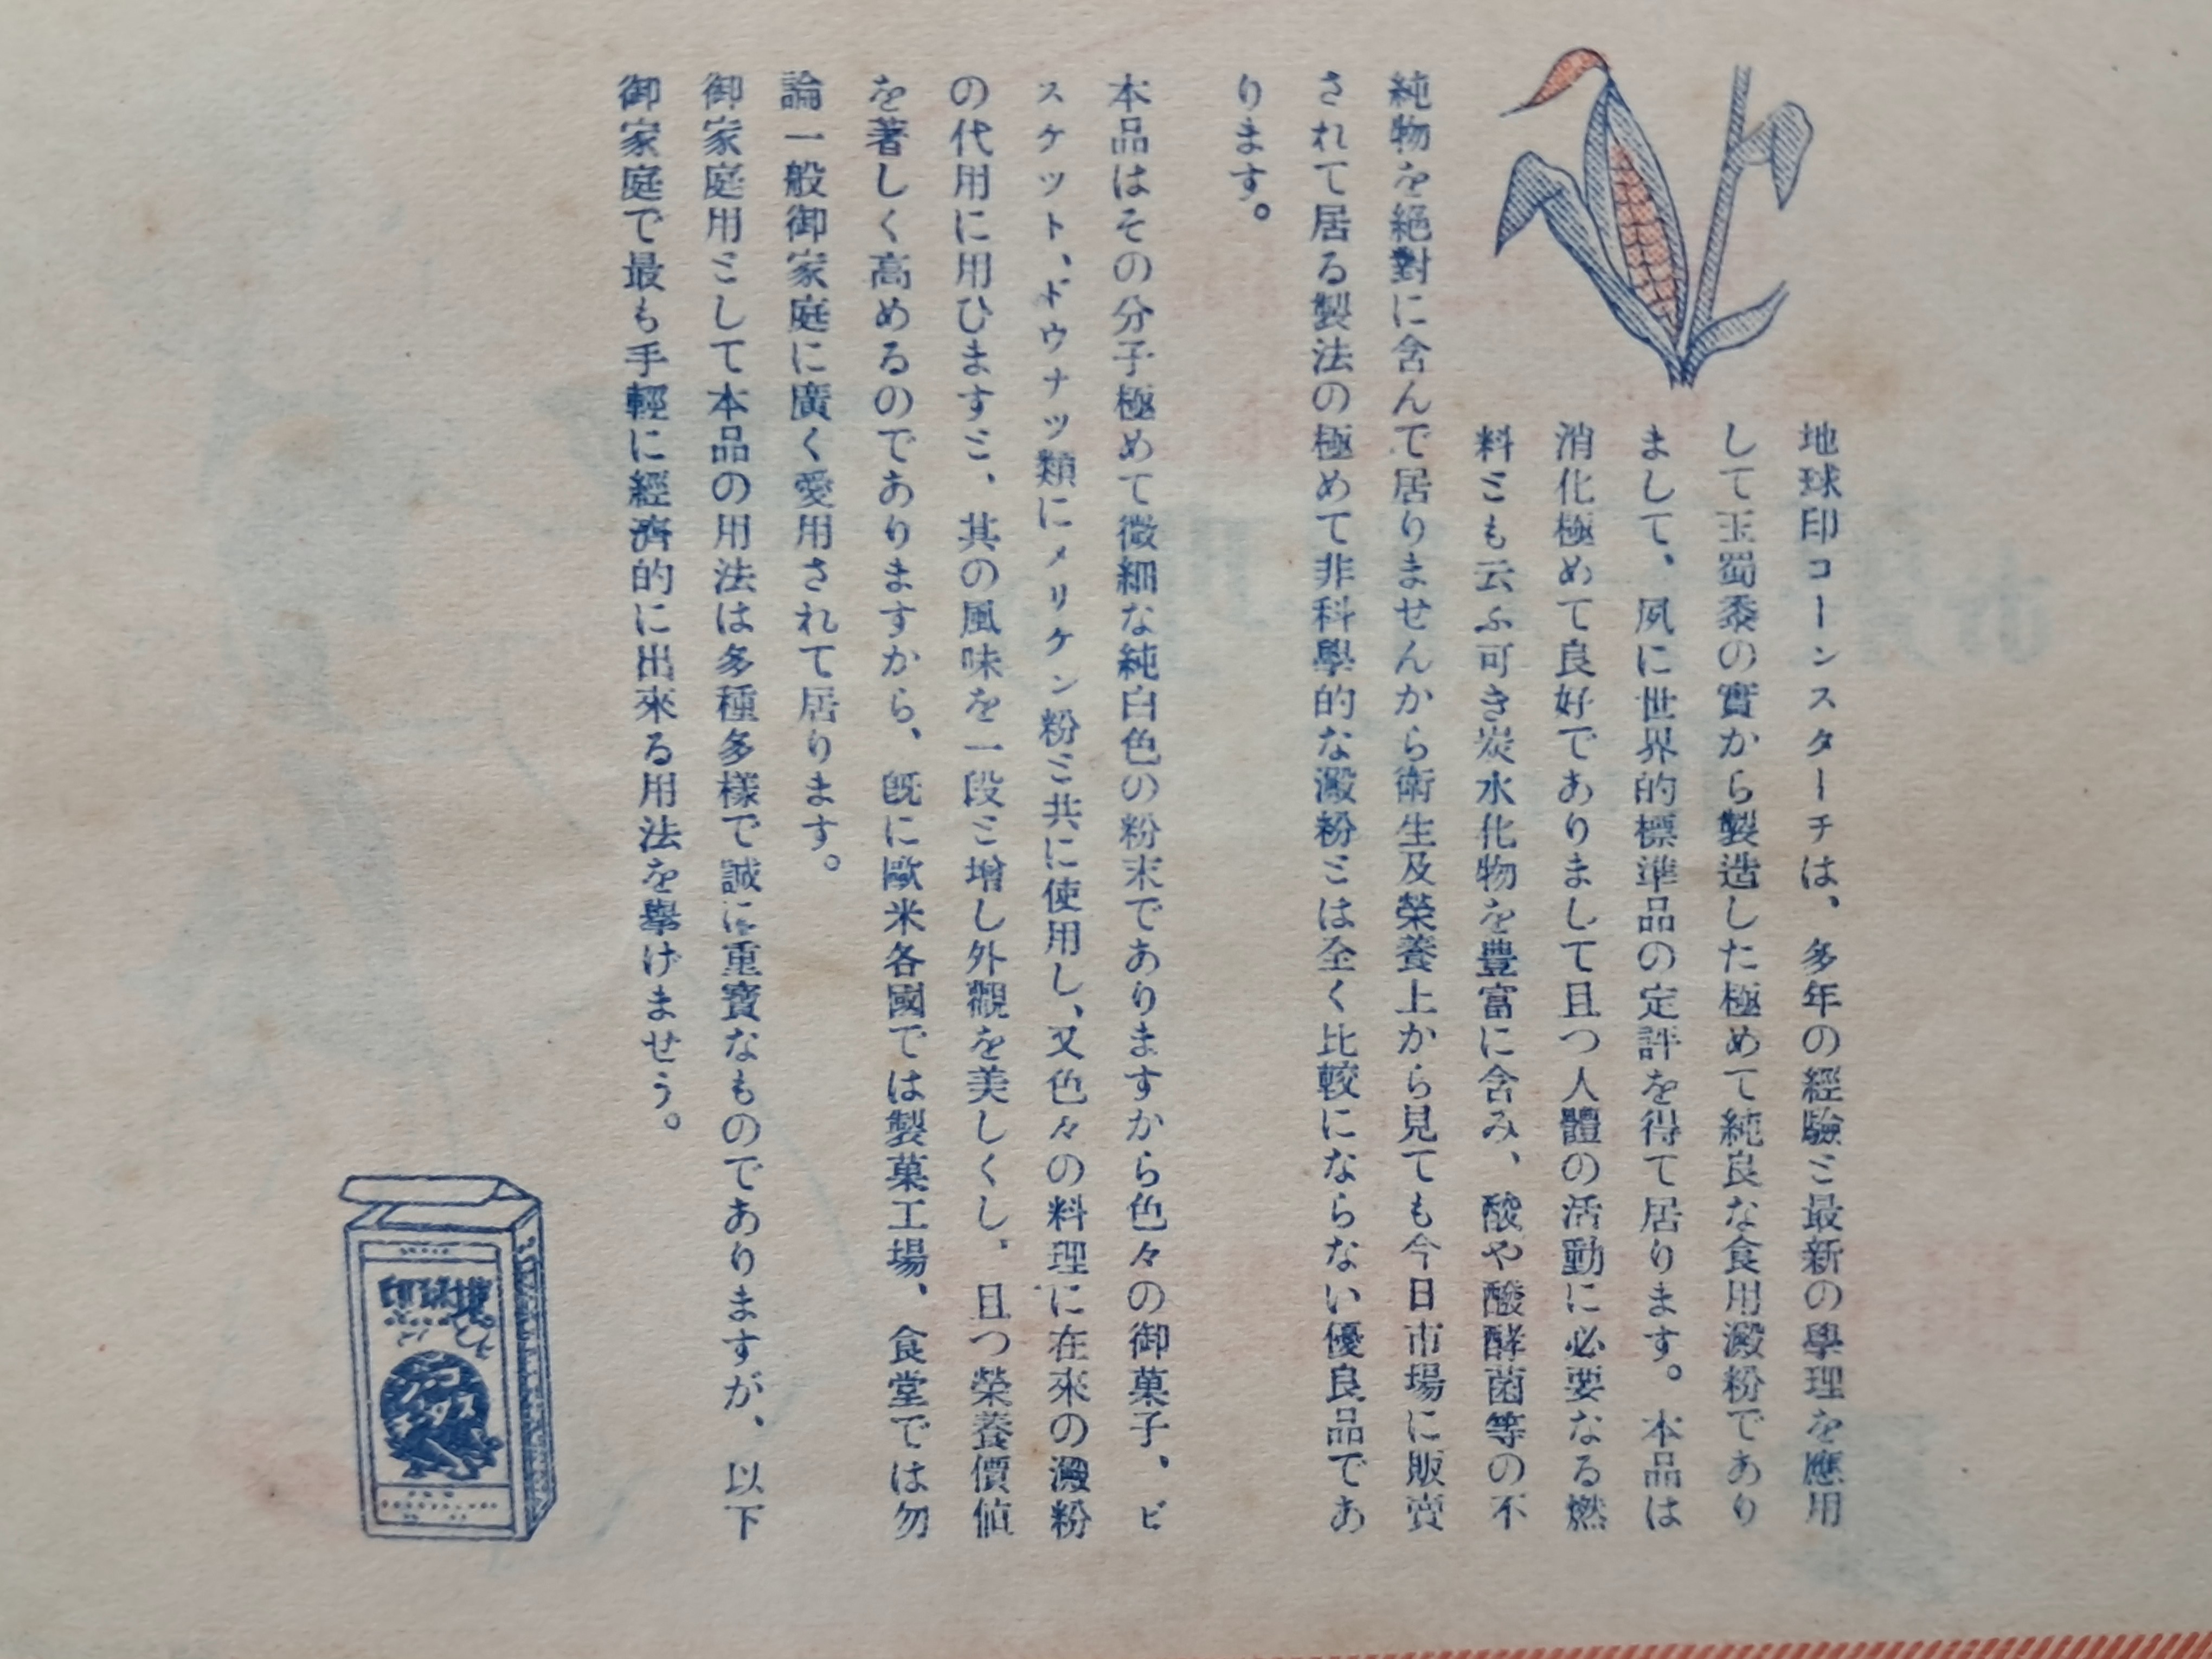 地球印コーンスターチは、多年の經驗ミ最新の學理を應用
して玉蜀黍の實から製造した極めて純良な食用澱粉であり
まして、夙に世界的標準品の定評を得て居ります。本品は
消化極めて良好でありまして且つ人體の活動に必要なる燃
料ミも云ふ可き炭水化物を豊富に含み、酸や酸酵菌等の不
純物を絕對に含んで居りませんから衛生及榮養上から見ても今日市場に販賣
されて居る製法の極めて非科學的な澱粉ミは全く比較にならない優良品であ
ります。
本品はその分子極めて微細な純白色の粉末でありますから色々の御菓子、ビ
スケット、ドウナッツ類にメリケン粉ミ共に使用し、又色々の料理に在來の澱粉
の代用に用ひますミ、其の風味を一段ミ增し外觀を美しくし、且つ榮養價値
を著しく高めるのでありますから、既に歐米各國では製菓工場、食堂では勿
論一般御家庭に廣く愛用されて居ります。
御家庭用ミして本品の用法は多種多樣で誠に重寶なものでありますが、以下
御家庭で最も手輕に經濟的に出來る用法を擧げませう。
印球地
ンーコ
チータス